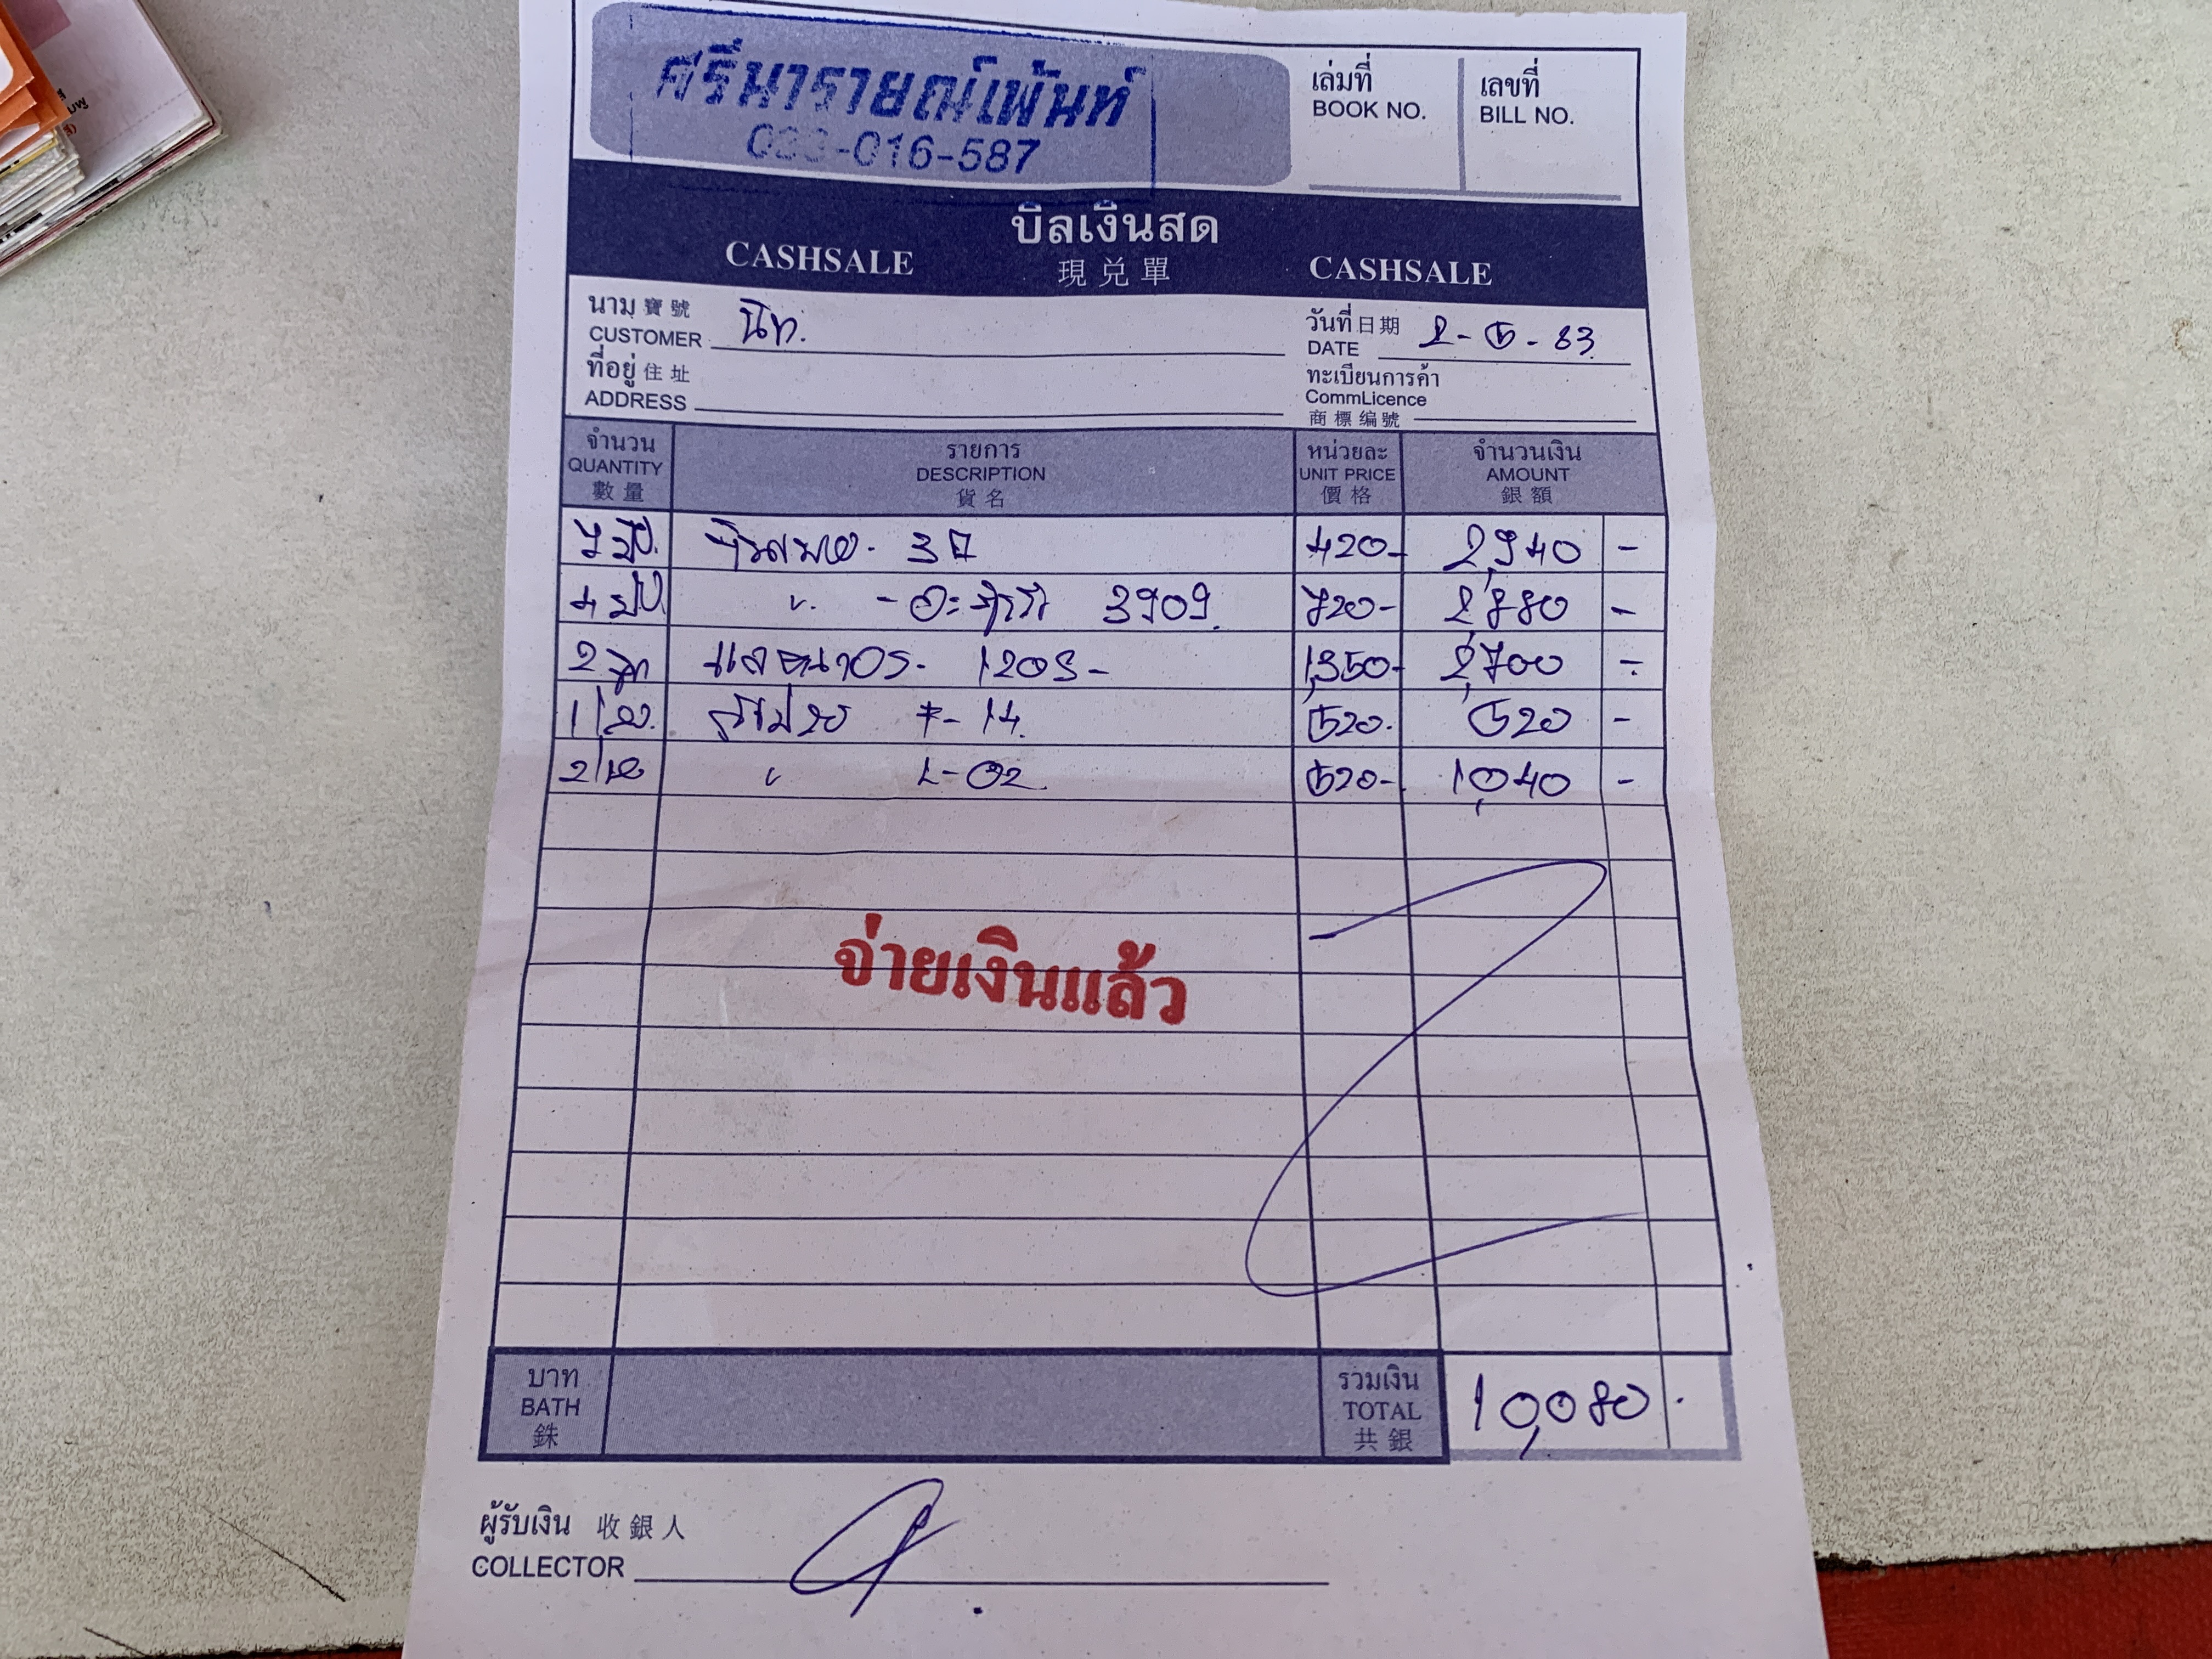 ศรีนารายณ์เพ้นท์
-016-587
เล่มที่
BOOK NO.
เลขที่
BILL NO.
บิลเงินสด
CASHSALE 現兑單 CASHSALE
นาม 寶號
CUSTOMER
วันที่ 日期
DATE 2-5-83
ที่อยู่ 住址
ADDRESS
ทะเบียนการค้า
CommLicence
商標编號
จำนวน รายการ หน่วยละ จำนวนเงิน
QUANTITY DESCRIPTION UNIT PRICE AMOUNT
數量 貨名 價格 銀額
7 420- 2,940 -
4 3909 720- 2,880 -
2 1,350- 2,700 -
1 520- 520 -
2 L-02 520- 1,040 -
จ่ายเงินแล้ว
บาท
BATH
銖
รวมเงิน
TOTAL
共銀
10,080 -
ผู้รับเงิน 收銀人
COLLECTOR